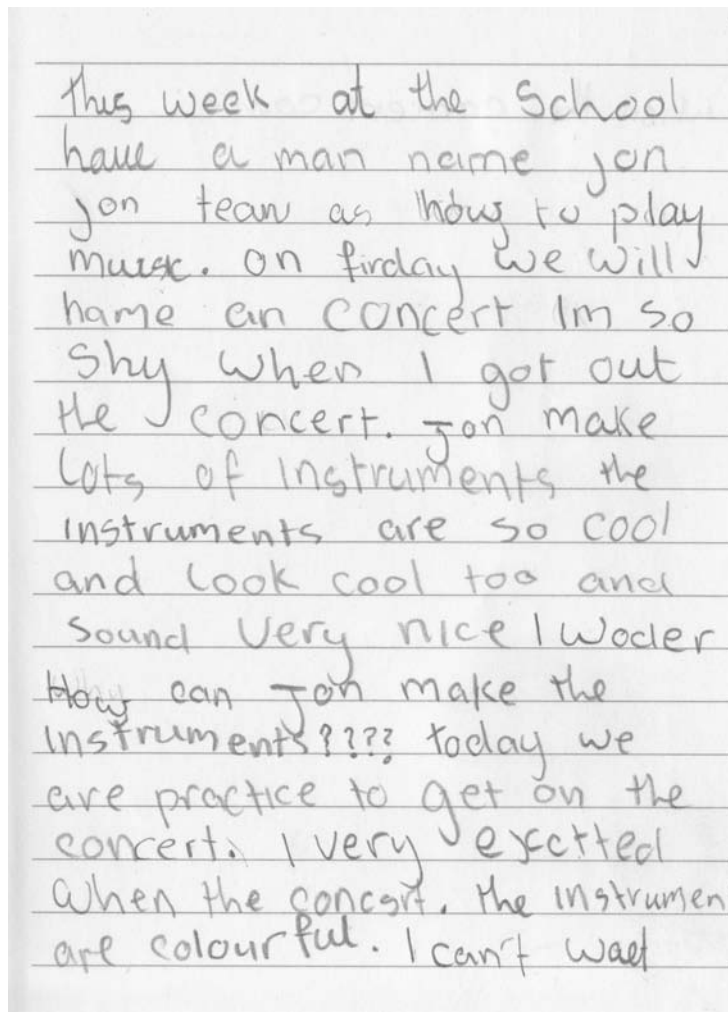 this week at the School
have a man name jon
jon tean as how to play
muisc. on firday we will
hame an concert Im so
Shy when I got out
the concert. Jon make
lots of instruments the
instruments are so cool
and look cool too and
sound very nice I woder
How can Jon make the
instruments???? today we
are practice to get on the
concert. I very exctted
when the concert. the instrumen
are colourful. I can't waet